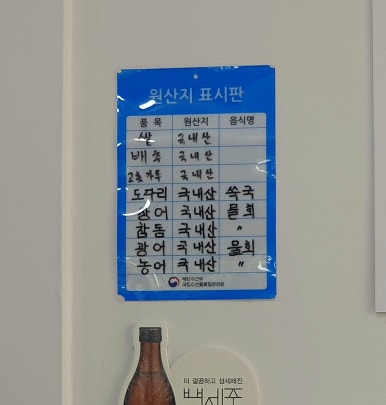 원산지 표시판
품 목 원산지 음식명
쌀 국내산
배추 국내산
고춧가루 국내산
도다리 국내산 쑥국
장어 국내산 물회
참돔 국내산 〃
광어 국내산 물회
농어 국내산 〃
해양수산부
국립수산물품질관리원
더 깔끔하고 섬세해진
백세주